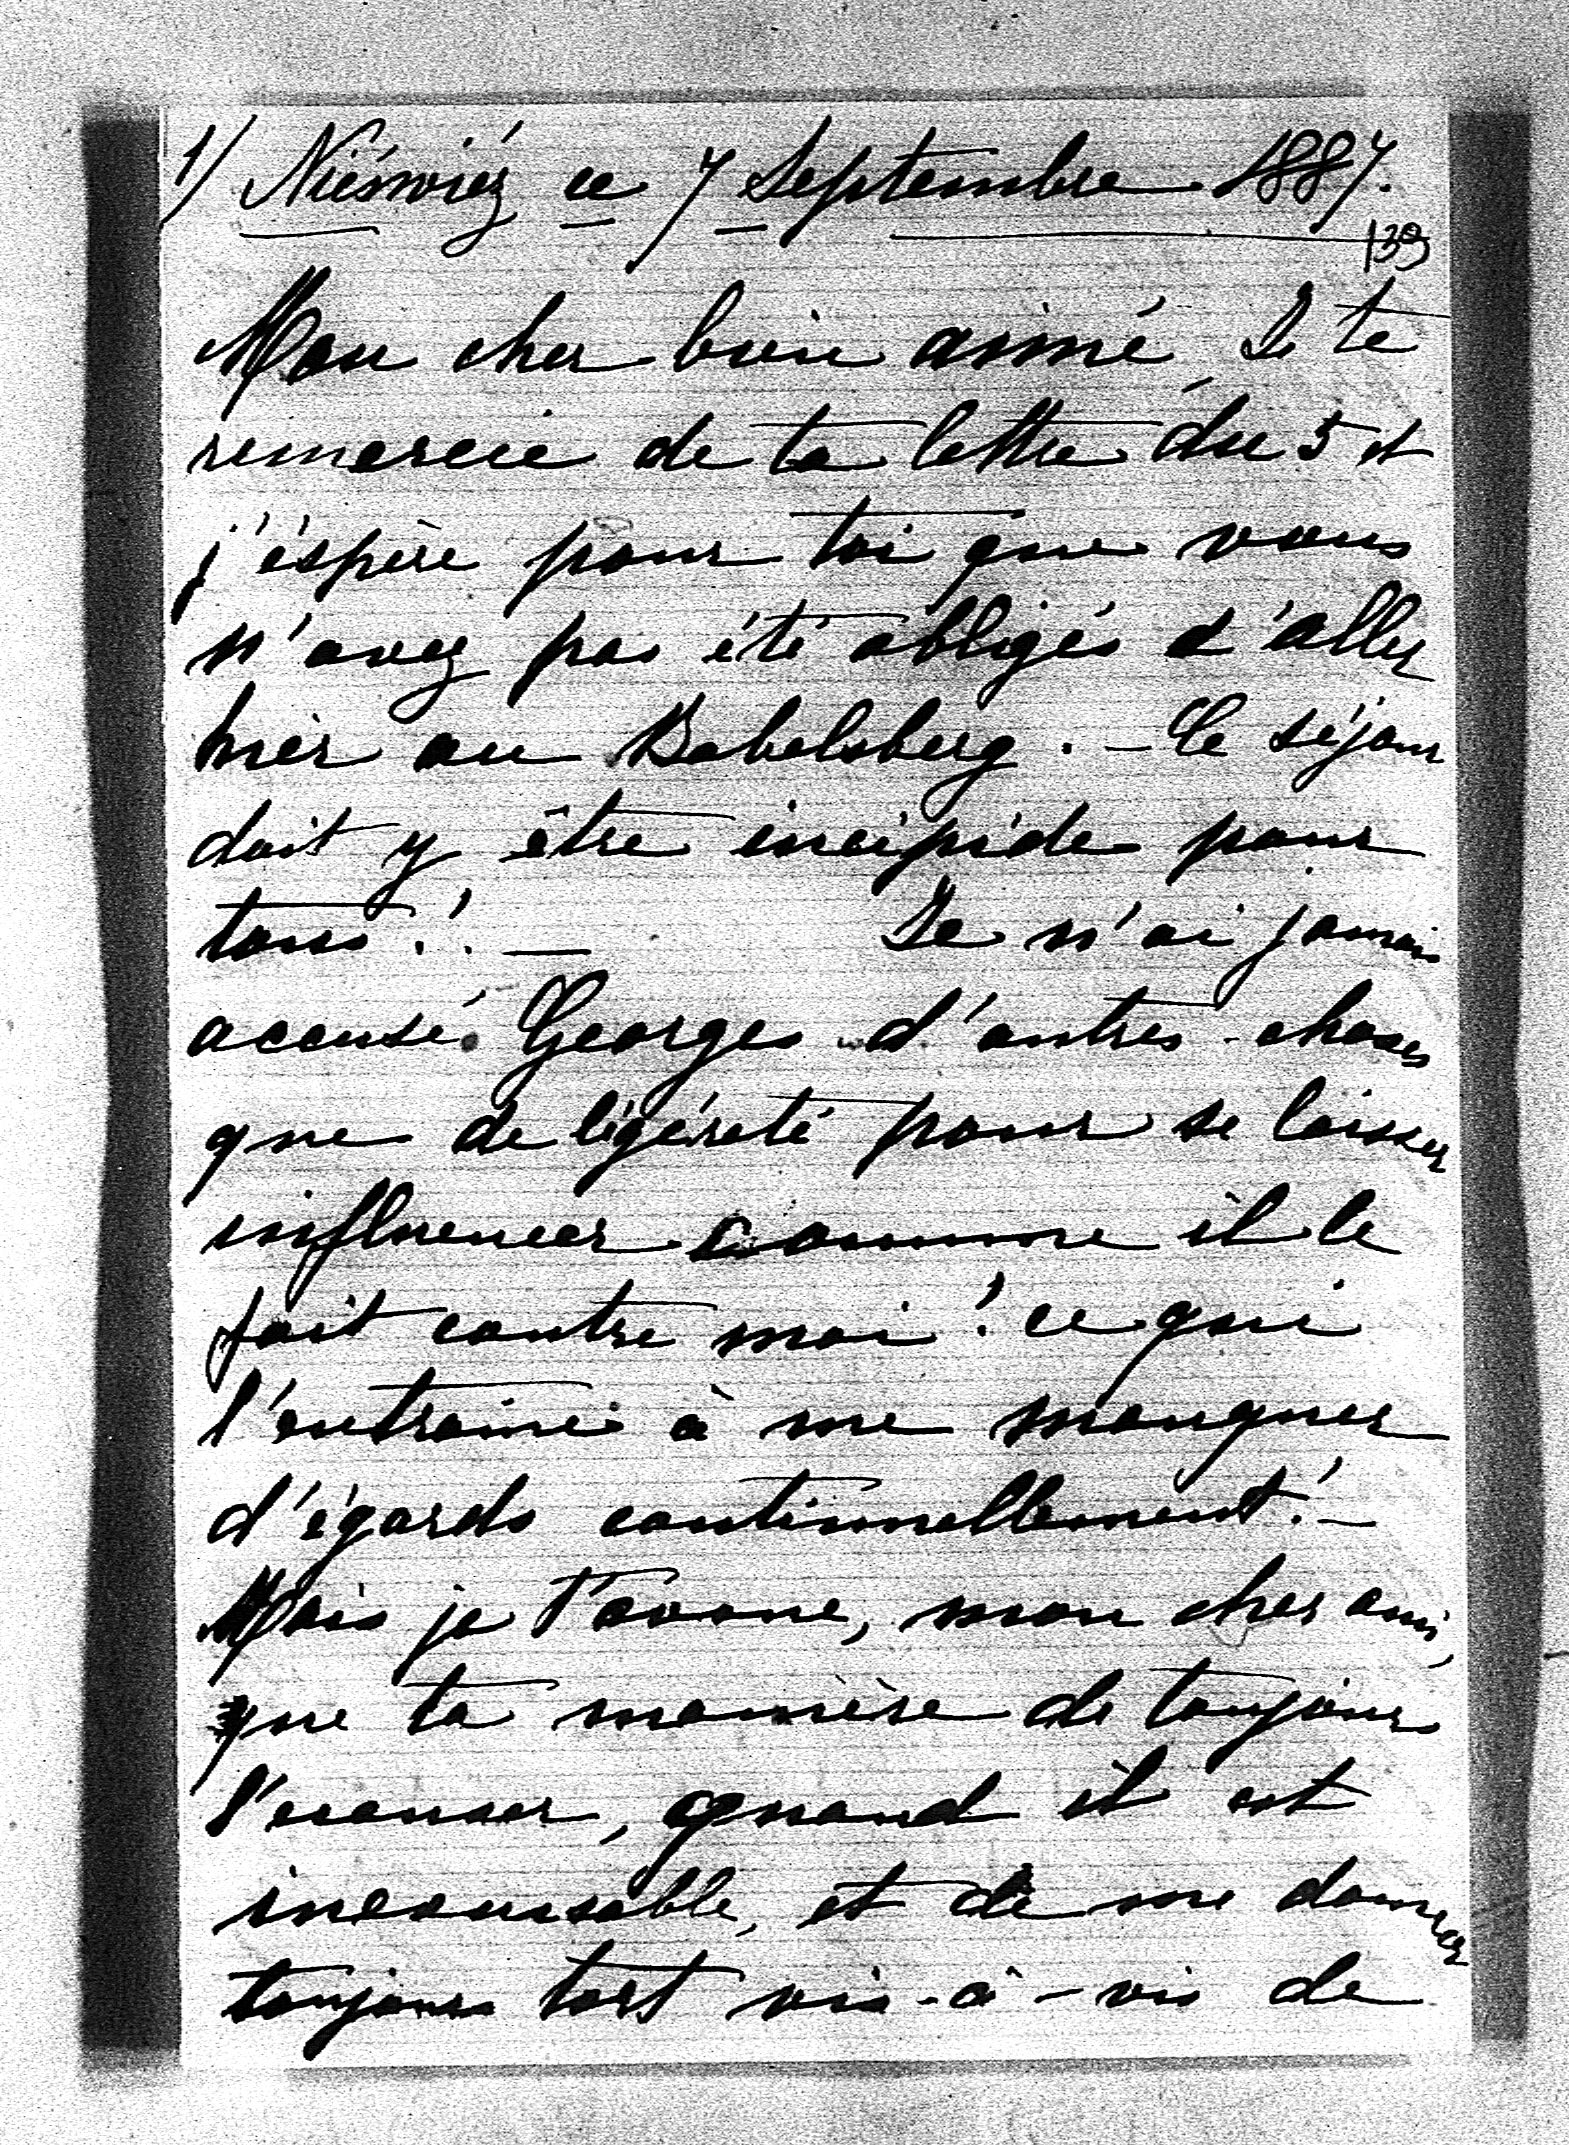 1/ Niéswiéz ce 7 Septembre 1887.
139
Mon cher bien aimé, Je te
remercie de ta lettre du 5 et
j'éspère pour toi que vous
n'avez pas été obligés d'aller
hier au Babelsberg. - Le séjour
doit y être incipide pour
tous!. — Je n'ai jamais
accusé Georges d'autres choses
que de légéreté pour se laisser
influencer comme il le
fait contre moi! ce qui
l'entraine à me manquer
d'égards continuellement! -
Mais je t'avoue, mon cher ami,
que ta manière de toujours
l'excuser, quand il est
inexcusable, et de me donner
toujours tort vis-à-vis de